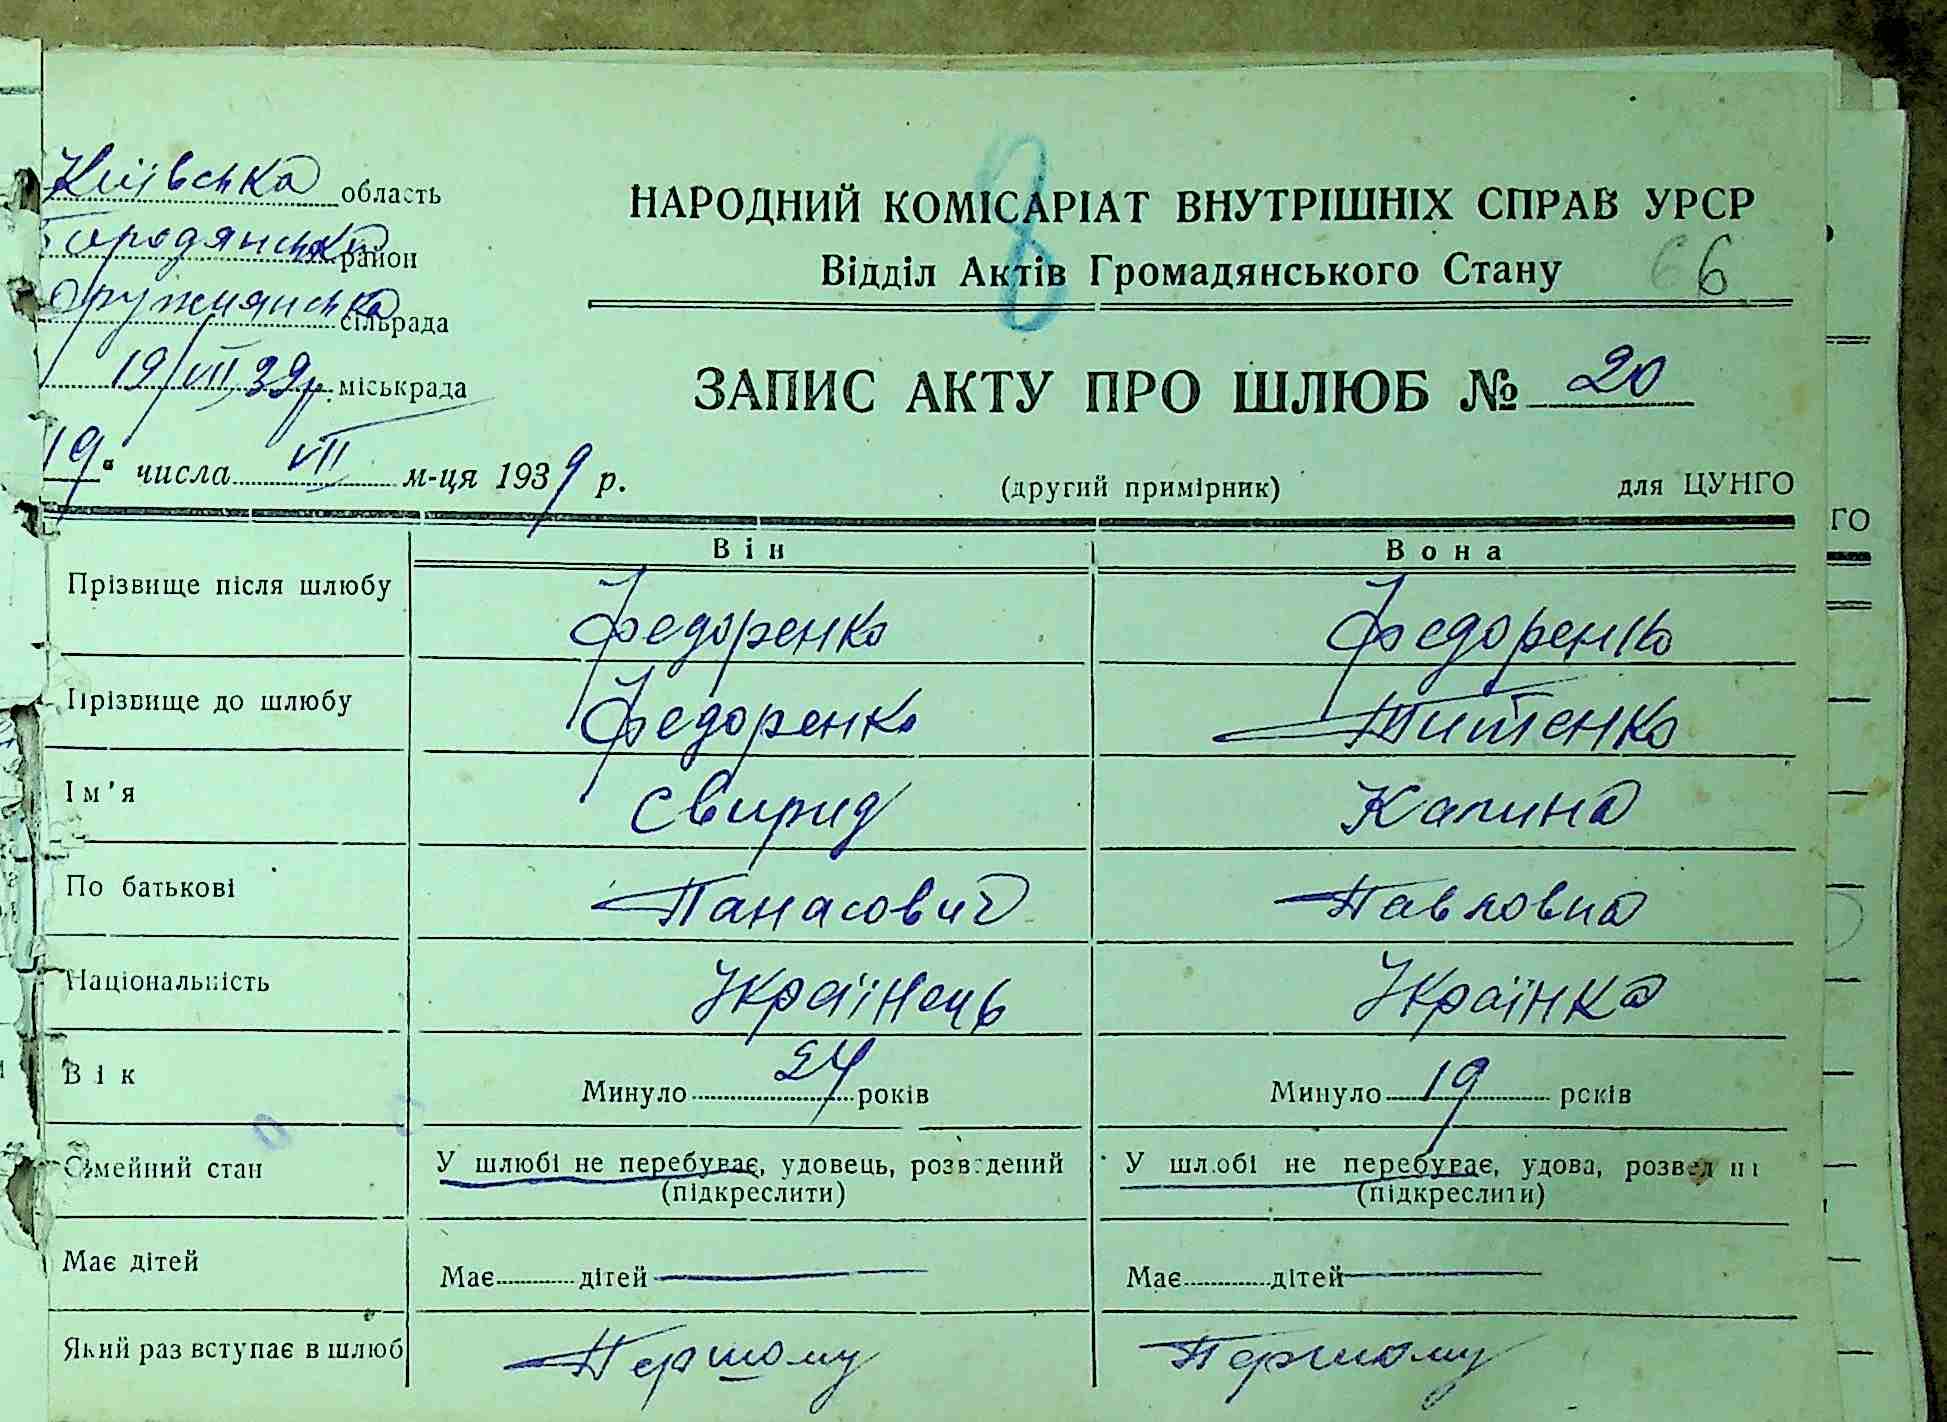 Київська область
Бородянський район
Дружнянська сільрада
19/VII 39р. міськрада
8
НАРОДНИЙ КОМІСАРІАТ ВНУТРІШНІХ СПРАВ УРСР
Відділ Актів Громадянського Стану 66
ЗАПИС АКТУ ПРО ШЛЮБ № 20
19" числа VII м-ця 1939 р. (другий примірник) для ЦУНГО
ГО
Він Вона
Прізвище після шлюбу Федоренко Федоренко
Прізвище до шлюбу Федоренко Титенко
Ім'я Свирид Калина
По батькові Панасович Павловна
Національність Українець Українка
Вік Минуло 24 років Минуло 19 років
Сімейний стан У шлюбі не перебуває, удовець, розведений У шлюбі не перебуває, удова, розведені
(підкреслити) (підкреслити)
Має дітей Має дітей — Має дітей —
Який раз вступає в шлюб Першому Першому